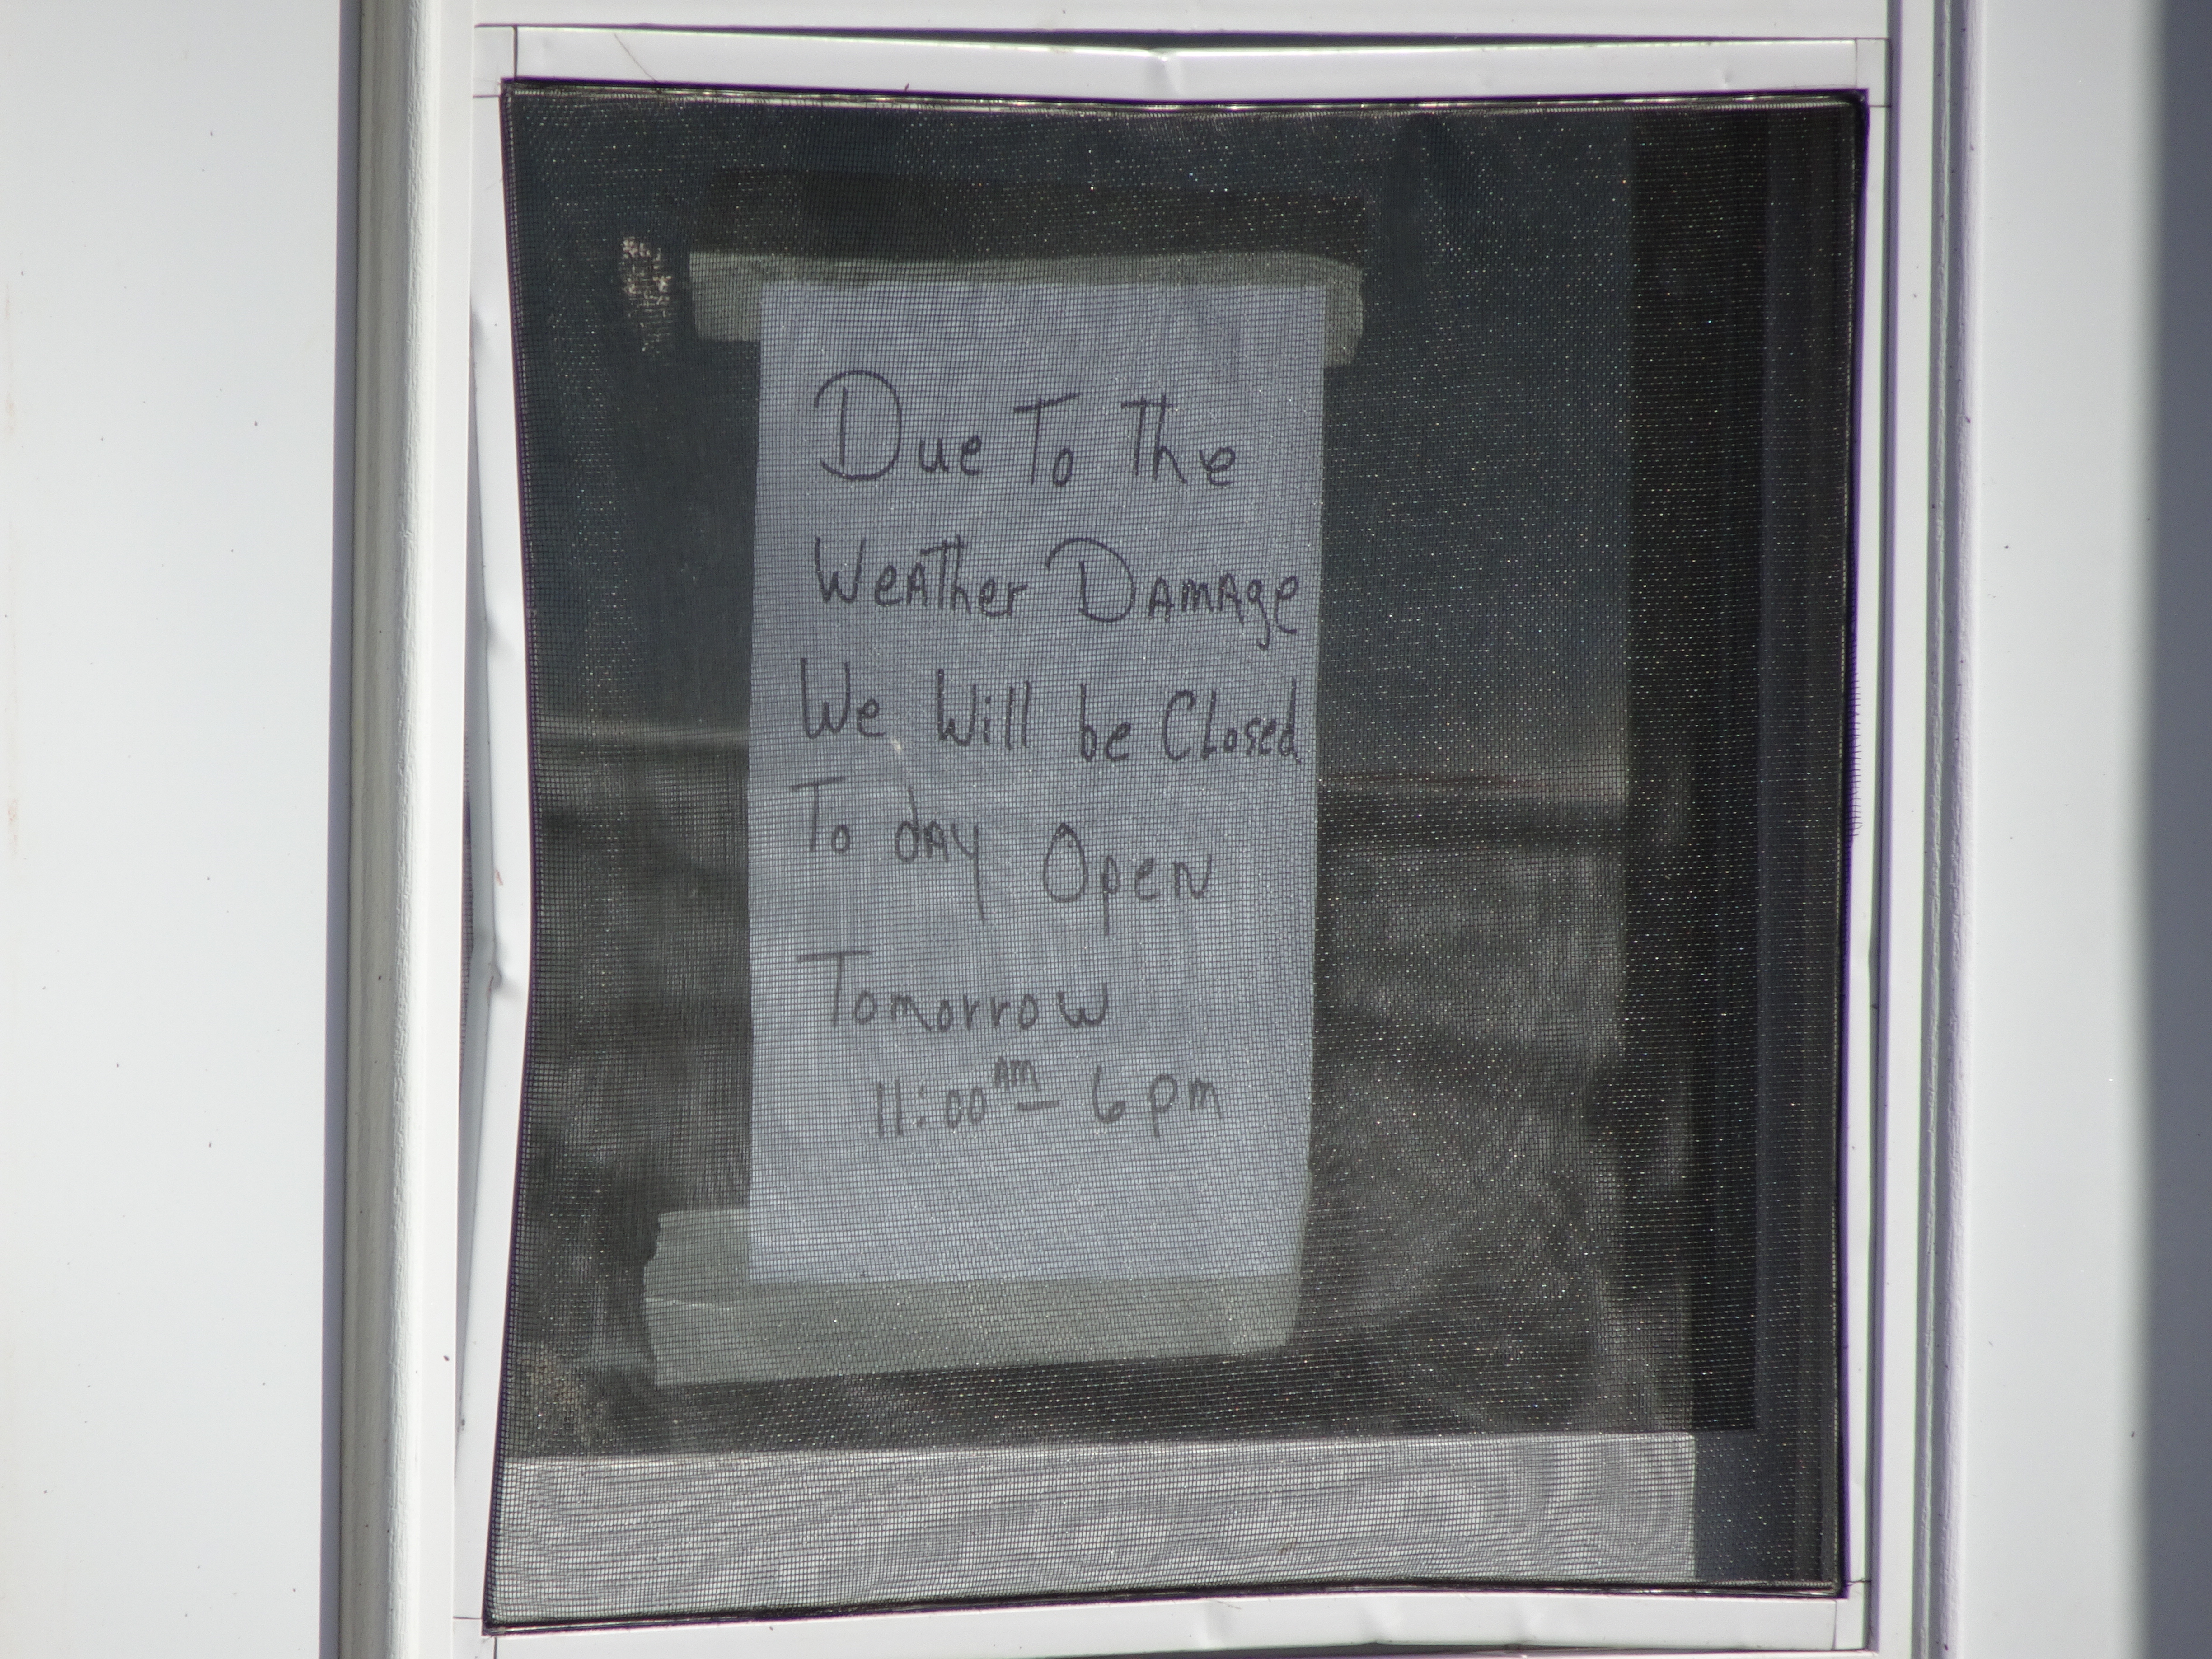 Due To The
WeATher DAmAge
We Will be Closed
To dAy Open
Tomorrow
11:00 Am - 6 pm